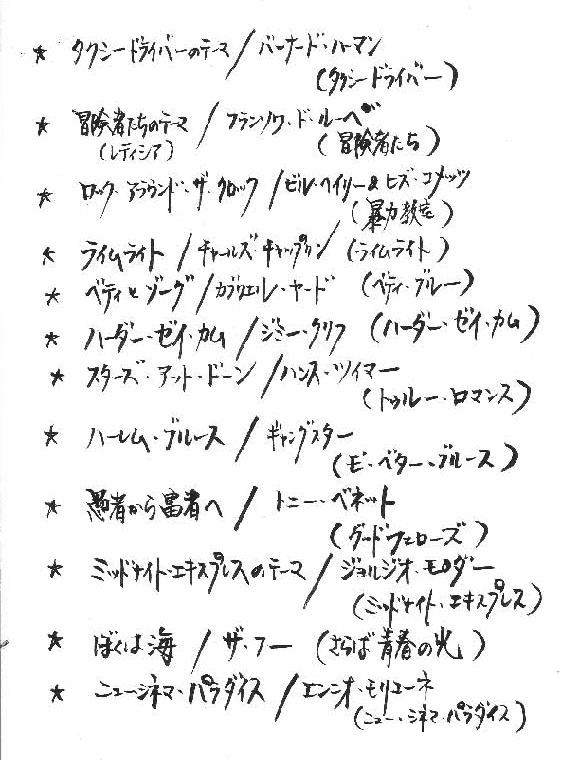 ★ タクシードライバーのテーマ / バーナード・ハーマン
(タクシードライバー)
★ 冒険者たちのテーマ / フランソワ・ド・ルーベ
(レティシア) (冒険者たち)
★ ロック・アラウンド・ザ・クロック / ビル・ヘイリー & ヒズ・コメッツ
(暴力教室)
★ ライムライト / チャールズ・チャップリン (ライムライト)
★ ベティとゾーグ / ガブリエル・ヤード (ベティ・ブルー)
★ ハーダー・ゼイ・カム / ジミー・クリフ (ハーダー・ゼイ・カム)
★ スターズ・アット・ドーン / ハンス・ツィマー
(トゥルー・ロマンス)
★ ハーレム・ブルース / ギャングスター
(モ・ベター・ブルース)
★ 愚者から富者へ / トニー・ベネット
(グッドフェローズ)
★ ミッドナイト・エキスプレスのテーマ / ジョルジオ・モロダー
(ミッドナイト・エキスプレス)
★ ぼくは海 / ザ・フー (さらば青春の光)
★ ニュー・シネマ・パラダイス / エンニオ・モリコーネ
(ニュー・シネマ・パラダイス)